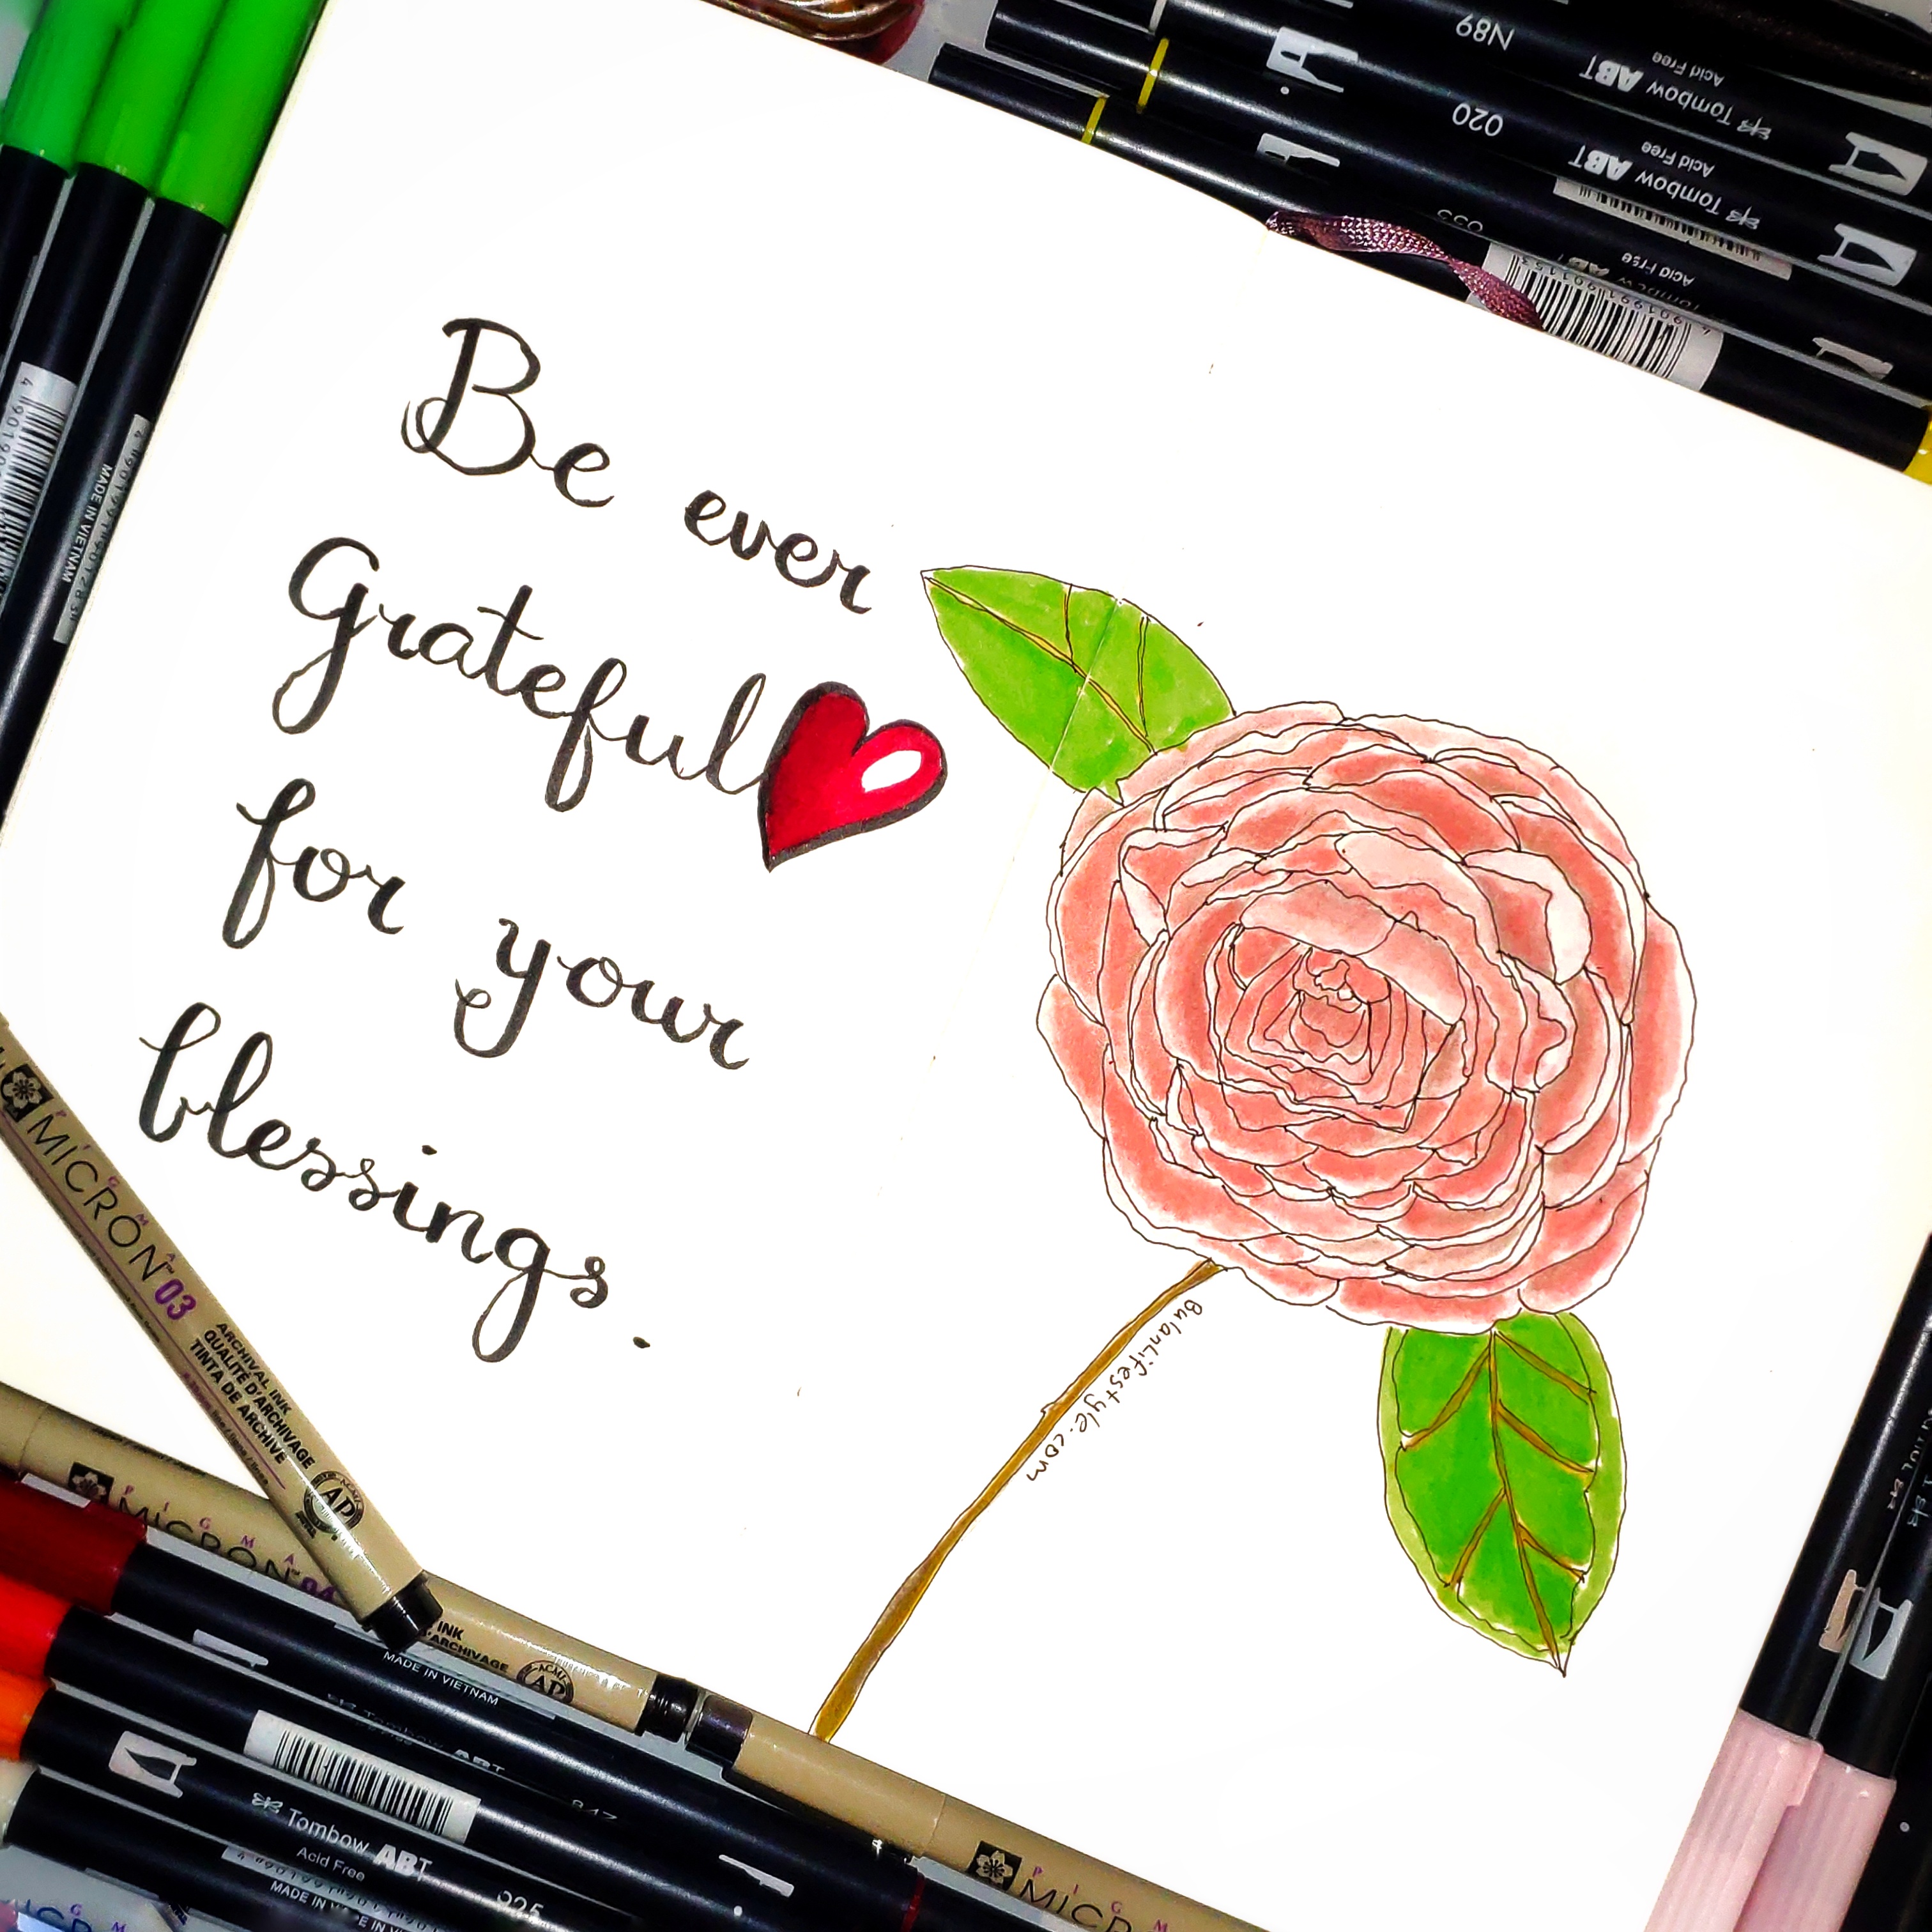 N89
Tombow ABT
Acid Free
020
Tombow ABT
Acid Free
Acid Free
Be ever
Grateful
for your
blessings.
BulanLifestyle.com
MADE IN VIETNAM
PIGMA
MICRON™ 03
ARCHIVAL INK
QUALITÉ D'ARCHIVAGE
TINTA DE ARCHIVE
AP
PIGMA
MICRON™ 04
INK
D'ARCHIVAGE
ACMI
AP
MADE IN VIETNAM
Tombow ABT
947
Tombow ABT
Acid Free
925
MADE IN
PIGM
MICRO